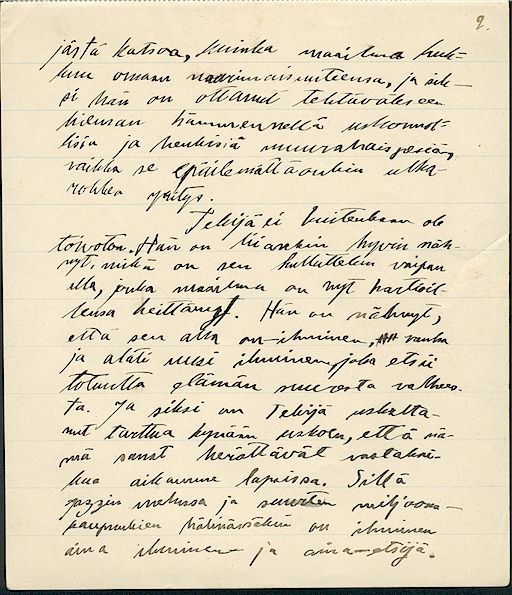 2.
jästä katsoa, kuinka maailma huk-
kuu omaan naurimaisuuteensa, ja sik-
si hän on ottanut tehtäväkseen
hieman hämmennellä uskonnol-
lisia ja henkisiä muurahaispesiä,
vaikka se epäilemättä onkin uhka-
rohkea yritys.
Tekijä ei kuitenkaan ole
toivoton. Hän on liiankin hyvin näh-
nyt, mikä on sen kulttuurin vaipan
alla, jonka maailma on nyt hartioil-
leen heittänyt. Hän on nähnyt,
että sen alla on ihminen, vanha
ja aina uusi ihminen, joka etsii
totuutta elämän suuresta valhees-
ta. Ja siksi on Tekijä uskalta-
nut tarttua kynään uskoen, että nä-
mä sanat herättävät vastakai-
kua aikamme lapsissa. Sillä
jazzin melussa ja suurten miljoona-
kaupunkien hälinässäkin on ihminen
aina ihminen ja aina etsijä.